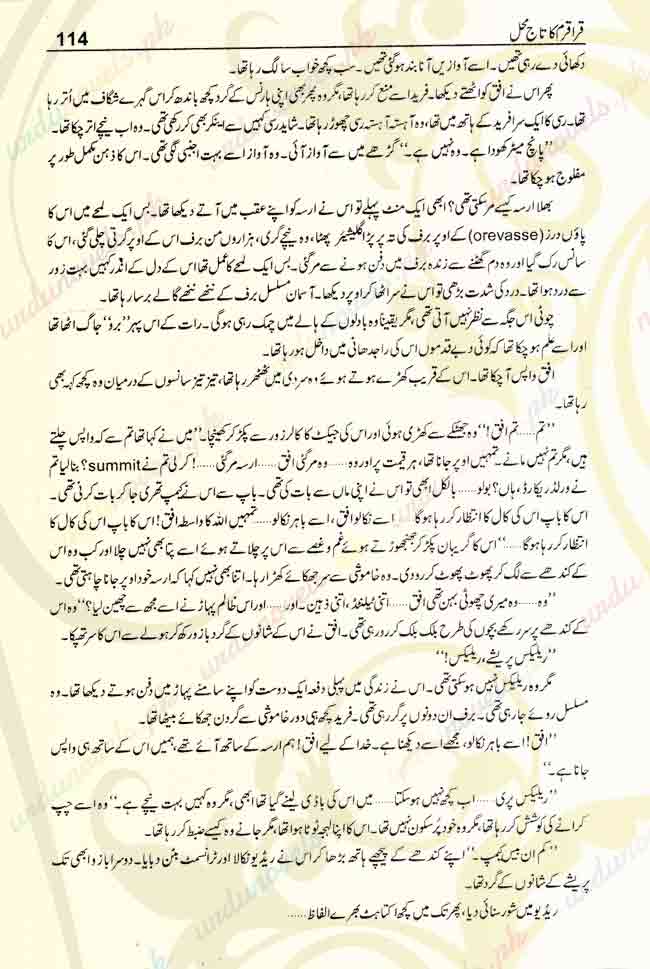 قراقرم کا تاج محل
114
دکھائی دے رہی تھیں۔ اسے آوازیں آنا بند ہو گئی تھیں۔ سب کچھ خواب سا لگ رہا تھا۔
پھر اس نے افق کو اٹھتے دیکھا۔ فرید اسے منع کر رہا تھا، مگر وہ پھر بھی اپنی ہارنس کے گرد کچھ باندھ کر اس گہرے شگاف میں اُتر رہا
تھا۔ رسی کا ایک سرا فرید کے ہاتھ میں تھا، وہ آہستہ آہستہ رسی چھوڑ رہا تھا۔ شاید رسی کہیں سے اینکر بھی کر رکھی تھی۔ وہ اب نیچے اتر چکا تھا۔
”پانچ میٹر کھودا ہے۔ وہ نہیں ہے۔“ گڑھے میں سے آواز آئی۔ وہ آواز اسے بہت اجنبی لگی تھی۔ اس کا ذہن مکمل طور پر
مفلوج ہو چکا تھا۔
بھلا ارسہ کیسے مر سکتی تھی؟ ابھی ایک منٹ پہلے تو اس نے ارسہ کو اپنے عقب میں آتے دیکھا تھا۔ بس ایک لمحے میں اس کا
پاؤں درز (orevasse) کے اوپر برف کی تہ پر پڑا گلیشیئر پھٹا، وہ نیچے گری، ہزاروں من برف اس کے اوپر گرتی چلی گئی، اس کا
سانس رک گیا اور وہ دم گھٹنے سے زندہ برف میں دفن ہونے سے مر گئی۔ بس ایک لمحے کا عمل تھا اس کے دل کے اندر کہیں بہت زور
سے درد ہوا تھا۔ درد کی شدت بڑھی تو اس نے سر اٹھا کر اوپر دیکھا۔ آسمان مسلسل برف کے ننھے ننھے گالے برسا رہا تھا۔
چوٹی اس جگہ سے نظر نہیں آتی تھی، مگر یقیناً وہ بادلوں کے ہالے میں چمک رہی ہو گی۔ رات کے اس پہر ”برو“ جاگ اٹھا تھا
اور اسے علم ہو چکا تھا کہ کوئی دبے قدموں اس کی راجدھانی میں داخل ہو رہا تھا۔
افق واپس آ چکا تھا۔ اس کے قریب کھڑے ہوتے ہوئے وہ سردی میں ٹھٹھر رہا تھا، تیز تیز سانسوں کے درمیان وہ کچھ کہہ بھی
رہا تھا۔
”تم...... تم افق!“ وہ جھٹکے سے کھڑی ہوئی اور اس کی جیکٹ کا کالر زور سے پکڑ کر کھینچا۔ ”میں نے کہا تھا تم سے کہ واپس چلتے
ہیں، مگر تم نہیں مانے۔ تمہیں اوپر جانا تھا، ہر قیمت پر اور وہ...... وہ مر گئی افق...... ارسہ مر گئی......! کر لی تم نے summit؟ بنا لیا تم
نے ورلڈ ریکارڈ، ہاں؟ بولو...... بالکل ابھی تو اس نے اپنی ماں سے بات کی تھی۔ باپ سے اس نے کیمپ تھری جا کر بات کرنی تھی۔
اس کا باپ اس کی کال کا انتظار کر رہا ہو گا...... اسے نکالو افق، اسے باہر نکالو...... تمہیں اللہ کا واسطہ افق! اس کا باپ اس کی کال کا
انتظار کر رہا ہو گا......“ اس کا گریبان پکڑ کر جھنجھوڑتے ہوئے غم و غصے سے اس پر چلاتے ہوئے اسے پتا بھی نہیں چلا اور کب وہ اس
کے کندھے سے لگ کر پھوٹ پھوٹ کر رو دی۔ وہ خاموشی سے سر جھکائے کھڑا رہا۔ اتنا بھی نہیں کہا کہ ارسہ خود اوپر جانا چاہتی تھی۔
”وہ...... وہ میری چھوٹی بہن تھی افق...... اتنی ٹیلنٹڈ، اتنی ذہین۔ اور...... اور اس ظالم پہاڑ نے اسے مجھ سے چھین لیا؟“ وہ اس
کے کندھے پر سر رکھے بچوں کی طرح بلک بلک کر رو رہی تھی۔ افق نے اس کے شانوں کے گرد بازو رکھ کر ہولے سے اس کا سر تھپکا۔
”ریلیکس پریشے، ریلیکس!“
مگر وہ ریلیکس نہیں ہو سکتی تھی۔ اس نے زندگی میں پہلی دفعہ ایک دوست کو اپنے سامنے پہاڑ میں دفن ہوتے دیکھا تھا۔ وہ
مسلسل روئے جا رہی تھی۔ برف ان دونوں پر گر رہی تھی۔ فرید کچھ ہی دور خاموشی سے گردن جھکائے بیٹھا تھا۔
”افق! اسے باہر نکالو، مجھے اسے دیکھنا ہے۔ خدا کے لیے افق! ہم ارسہ کے ساتھ آئے تھے، ہمیں اس کے ساتھ ہی واپس
جانا ہے۔“
”ریلیکس پری...... اب کچھ نہیں ہو سکتا...... میں اس کی باڈی لینے گیا تھا ابھی، مگر وہ کہیں بہت نیچے ہے۔“ وہ اسے چپ
کرانے کی کوشش کر رہا تھا، مگر وہ خود پر سکون نہیں تھا۔ اس کا اپنا لہجہ ٹوٹا ہوا تھا، مگر جانے وہ کیسے ضبط کر رہا تھا۔
”کم ان بیس کیمپ۔“ اپنے کندھے کے پیچھے ہاتھ بڑھا کر اس نے ریڈیو نکالا اور ٹرانسمٹ بٹن دبایا۔ دوسرا بازو ابھی تک
پریشے کے شانوں کے گرد تھا۔
ریڈیو میں شور سنائی دیا، پھر تک میں کچھ اکتاہٹ بھرے الفاظ......